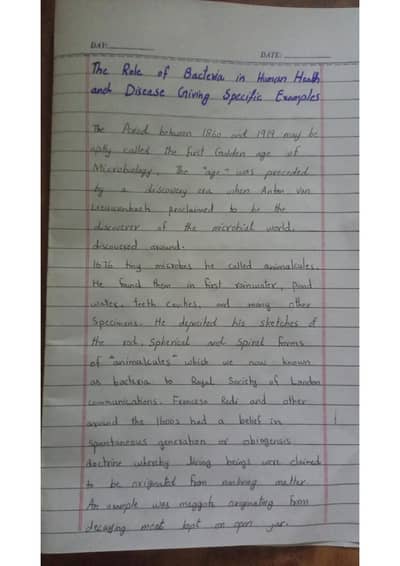 DAY:
DATE:
The Role of Bacteria in Human Health
and Disease Giving Specific Examples
The Period between 1860 and 1919 may be
aptly called the first Golden age of
Microbiology. The "age" was preceded
by a discovery era when Anton Van
Leeuwenhoek proclaimed to be the
discoverer of the microbial world,
discovered around.
1676 tiny microbes he called animalcules.
He found them in first rainwater, pond
water, teeth cavities, and many other
Specimens. He depicted his sketches of
the rod, Spherical and Spiral forms
of "animalcules" which we now known
as bacteria to Royal Society of London
communications. Francesco Redi and other
around the 1600s had a belief in
spontaneous generation or abiogensis
doctrine whereby living beings were claimed
to be originated from nonliving matter.
An example was maggots originating from
decaying meat kept on open jar.